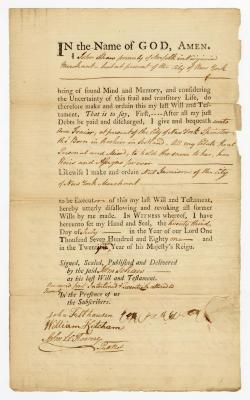 IN the Name of GOD, AMEN.
I John Shaw formerly of Norfolk in Virginia
Merchant but at present of the City of New York
being of sound Mind and Memory, and considering
the Uncertainty of this frail and transitory Life, do
therefore make and ordain this my last Will and Tes-
tament, That is to say, First,—After all my just
Debts be paid and discharged, I give and bequeath unto
Ann Frazier, at present of the City of New York Spinster
the Born in in all my Estate Real
Personal and Mixed, to hold the same to her, her
Heirs and Assigns for ever
Likewise I make and ordain Neil Jamieson of the City
of New York Merchant
to be Executor of this my last Will and Testament,
hereby utterly disallowing and revoking all former
Wills by me made. In WITNESS whereof, I have
hereunto set my Hand and Seal, the twenty third
Day of July in the Year of our Lord One
Thousand Seven Hundred and Eighty one and
in the Twenty first Year of his Majesty's Reign.
Signed, Sealed, Published and Delivered
by the said John Shaw
as his last Will and Testament.
In the Presence of us
the Subscribers.
John
William Ketcham
John